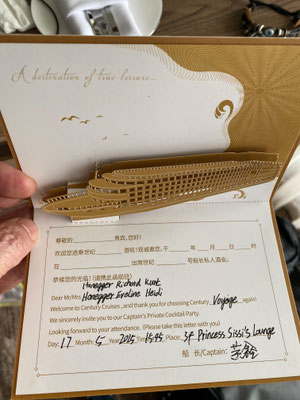 A destination of true leisure...
尊敬的 贵宾,您好!
欢迎您选乘世纪 游轮!现诚邀您,于 年 月 日 时
在 出席世纪 号船长私人酒会。
恭候您的光临!(请携此函前往)
Honegger Richard Kurt
Dear Mr/Mrs Honegger Eveline Heidi
Welcome to Century Cruises, and thank you for choosing Century Voyage again)
We sincerely invite you to our Captain's Private Cocktail Party.
Looking forward to your attendance. (Please take this letter with you)
Day: 17 Month: 5 Year: 2025 Time: Place: 3F Princess Sissi's Lounge
船 长/Captain: